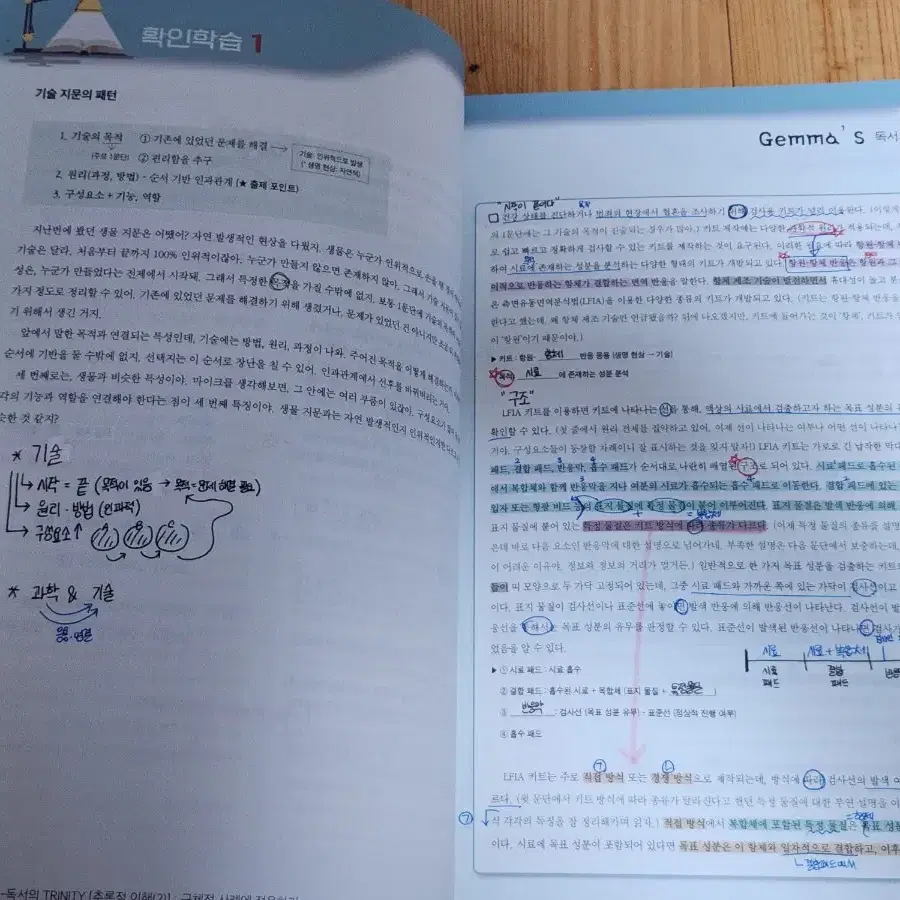 확인학습 1
기술 지문의 패턴
1. 기술의 목적 ① 기존에 있었던 문제를 해결 →
(주로 1문단) ② 편리함을 추구
기술: 인위적으로 발생
(* 생명 현상: 자연적)
2. 원리(과정, 방법) - 순서 기반 인과관계 (★ 출제 포인트)
3. 구성요소 + 기능, 역할
지난번에 봤던 생물 지문은 어땠어? 자연 발생적인 현상을 다뤘지. 생물은 누군가 인위적으로
기술은 달라. 처음부터 끝까지 100% 인위적이잖아. 누군가 만들지 않으면 존재하지 않아. 그래서 기술
성은, 누군가 만들었다는 전제에서 시작돼. 그래서 특정한 목적을 가질 수밖에 없지. 보통 1문단에
가지 정도로 정리할 수 있어. 기존에 있었던 문제를 해결하기 위해 생겼거나, 문제가 있었던 건 아니지만
기 위해서 생긴 거지.
앞에서 말한 목적과 연결되는 특성인데, 기술에는 방법, 원리, 과정이 나와. 주어진 목적을 어떻게
순서에 기반을 둘 수밖에 없지. 선택지는 이 순서로 장난을 칠 수 있어. 인과관계에서 선후를 바꿔버리는 거야.
세 번째로는, 생물과 비슷한 특성이야. 마이크를 생각해보면, 그 안에는 여러 부품이 있잖아. 구성요소가
각의 기능과 역할을 연결해야 한다는 점이 세 번째 특징이야. 생물 지문과는 자연 발생적인지 인위적인지만
슷한 것 같지?
* 기술
→ 시작 = 끝 (목적이 있음 →
→ 원리·방법 (인과적)
→ 구성요소↑ A B C
* 과학 & 기술
Gemma's 독서
"시작이 끝이다"
건강 상태를 진단하거나 범죄의 현장에서 혈흔을 조사하기 위해 검사용 키트가 널리 이용된다. (이렇게
의 1문단에는 그 기술의 목적이 진술되는 경우가 많아.) 키트 제작에는 다양한 과학적 원리가 적용되는데,
로 쉽고 빠르고 정확하게 검사할 수 있는 키트를 제작하는 것이 요구된다. 이러한 필요에 따라 항원-항체
하여 시료에 존재하는 성분을 분석하는 다양한 형태의 키트가 개발되고 있다. 항원-항체 반응은 항원과 그
이적으로 반응하는 항체가 결합하는 면역 반응을 말한다. 항체 제조 기술이 발전하면서 휴대성이 높고 분
은 측면유동면역분석법(LFIA)을 이용한 다양한 종류의 키트가 개발되고 있다. (키트는 항원-항체 반응을
한다고 했는데, 왜 항체 제조 기술만 언급했을까? 뒤에 나오겠지만, 키트에 들어가는 것이 '항체', 키트가
이 '항원'이기 때문이야.)
▶ 키트 : 항원- 항체 반응 응용 (생명 현상 → 기술)
목적: 시료 에 존재하는 성분 분석
"구조"
LFIA 키트를 이용하면 키트에 나타나는 선을 통해, 액상의 시료에서 검출하고자 하는 목표 성분의
확인할 수 있다. (첫 줄에서 원리 전체를 집약하고 있어. 이제 선이 나타나는 이유나 어떤 선이 나타나
거야. 구성요소들이 등장할 차례이니 잘 표시하는 것을 잊지 말자!) LFIA 키트는 가로로 긴 납작한 막대
패드, 결합 패드, 반응막, 흡수 패드가 순서대로 나란히 배열된 구조로 되어 있다. 시료 패드로 흡수된
에서 복합체와 함께 반응막을 지나 여분의 시료가 흡수되는 흡수 패드로 이동한다. 결합 패드에 있는
입자 또는 형광 비드 등의 표지 물질에 특정 물질이 붙어 이루어진다. 표지 물질은 발색 반응에 의해
표지 물질에 붙어 있는 특정 물질은 키트 방식에 따라 종류가 다르다. (이제 특정 물질의 종류를 설명
은데 바로 다음 요소인 반응막에 대한 설명으로 넘어가네. 부족한 설명은 다음 문단에서 보충하는데,
이 어려운 이유야. 정보와 정보의 거리가 멀거든.) 일반적으로 한 가지 목표 성분을 검출하는 키트의
들이 띠 모양으로 두 가닥 고정되어 있는데, 그중 시료 패드와 가까운 쪽에 있는 가닥이 검사선이고
이다. 표지 물질이 검사선이나 표준선에 놓이면 발색 반응에 의해 반응선이 나타난다. 검사선이 발
응선을 통해서는 목표 성분의 유무를 판정할 수 있다. 표준선이 발색된 반응선이 나타나면 검사가
었음을 알 수 있다.
시료 시료 + 복합체
시료 패드 결합 패드
▶ ① 시료 패드 : 시료 흡수
② 결합 패드 : 흡수된 시료 + 복합체 (표지 물질 + 특정물질 )
③ 반응막 : 검사선 (목표 성분 유무) - 표준선 (정상적 진행 여부)
④ 흡수 패드
LFIA 키트는 주로 직접 방식 또는 경쟁 방식으로 제작되는데, 방식에 따라 검사선의 발색 여
르다. (윗 문단에서 키트 방식에 따라 종류가 달라진다고 했던 특정 물질에 대한 부연 설명을
식 각각의 특징을 잘 정리해가며 읽자.) 직접 방식에서 복합체에 포함된 특정 물질은 목표 성분
이다. 시료에 목표 성분이 포함되어 있다면 목표 성분은 이 항체와 일차적으로 결합하고, 이후
독서의 TRINITY [추론적 이해(2)] : 구체적 사례에 적용하기